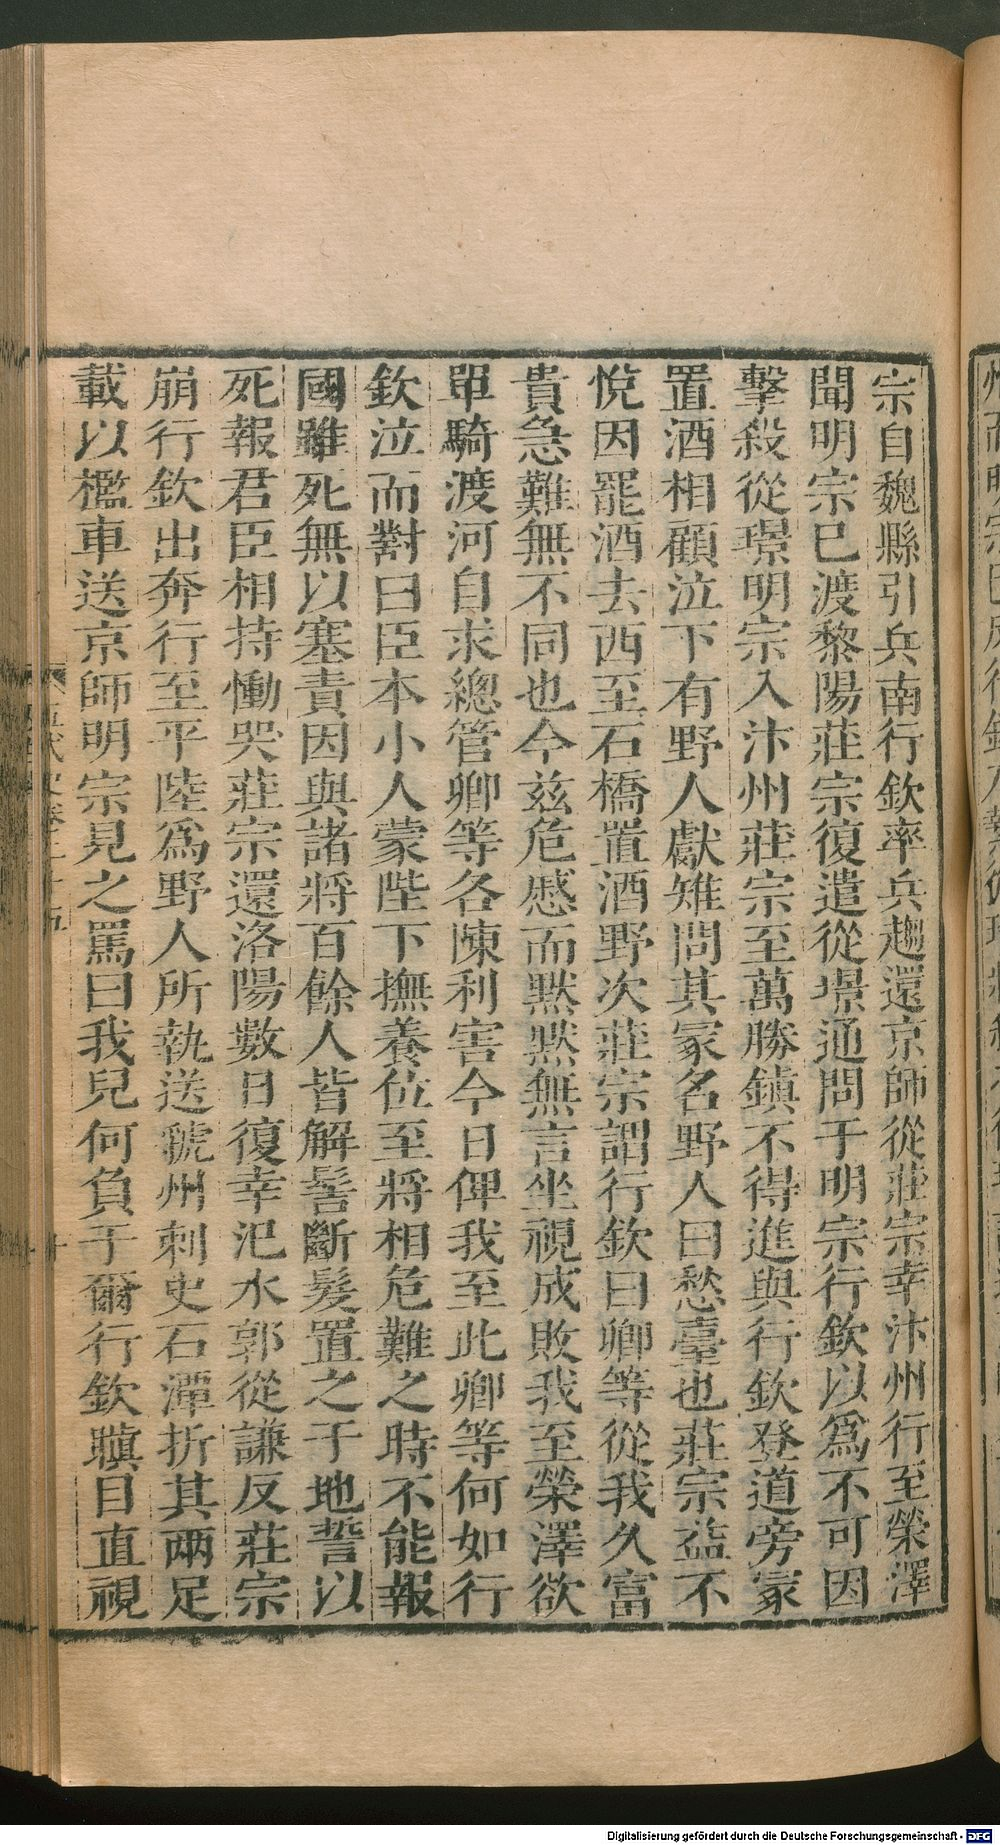 宗自魏縣引兵南行欽率兵趨還京師從莊宗幸汴州行至榮澤
聞明宗已渡黎陽莊宗復遣從璟通問于明宗行欽以爲不可因
擊殺從璟明宗入汴州莊宗至萬勝鎮不得進與行欽登道旁冢
置酒相顧泣下有野人獻雉問其冢名野人曰愁臺也莊宗益不
悅因罷酒去西至石橋置酒野次莊宗謂行欽曰卿等從我久富
貴急難無不同也今兹危慼而默默無言坐視成敗我至榮澤欲
單騎渡河自求總管卿等各陳利害今日俾我至此卿等何如行
欽泣而對曰臣本小人蒙陛下撫養位至將相危難之時不能報
國雖死無以塞責因與諸將百餘人皆解髻斷髮置之于地誓以
死報君臣相持慟哭莊宗還洛陽數日復幸汜水郭從謙反莊宗
崩行欽出奔行至平陸爲野人所執送虢州刺史石潭折其兩足
載以檻車送京師明宗見之罵曰我兒何負于爾行欽瞋目直視
Digitalisierung gefördert durch die Deutsche Forschungsgemeinschaft - DFG